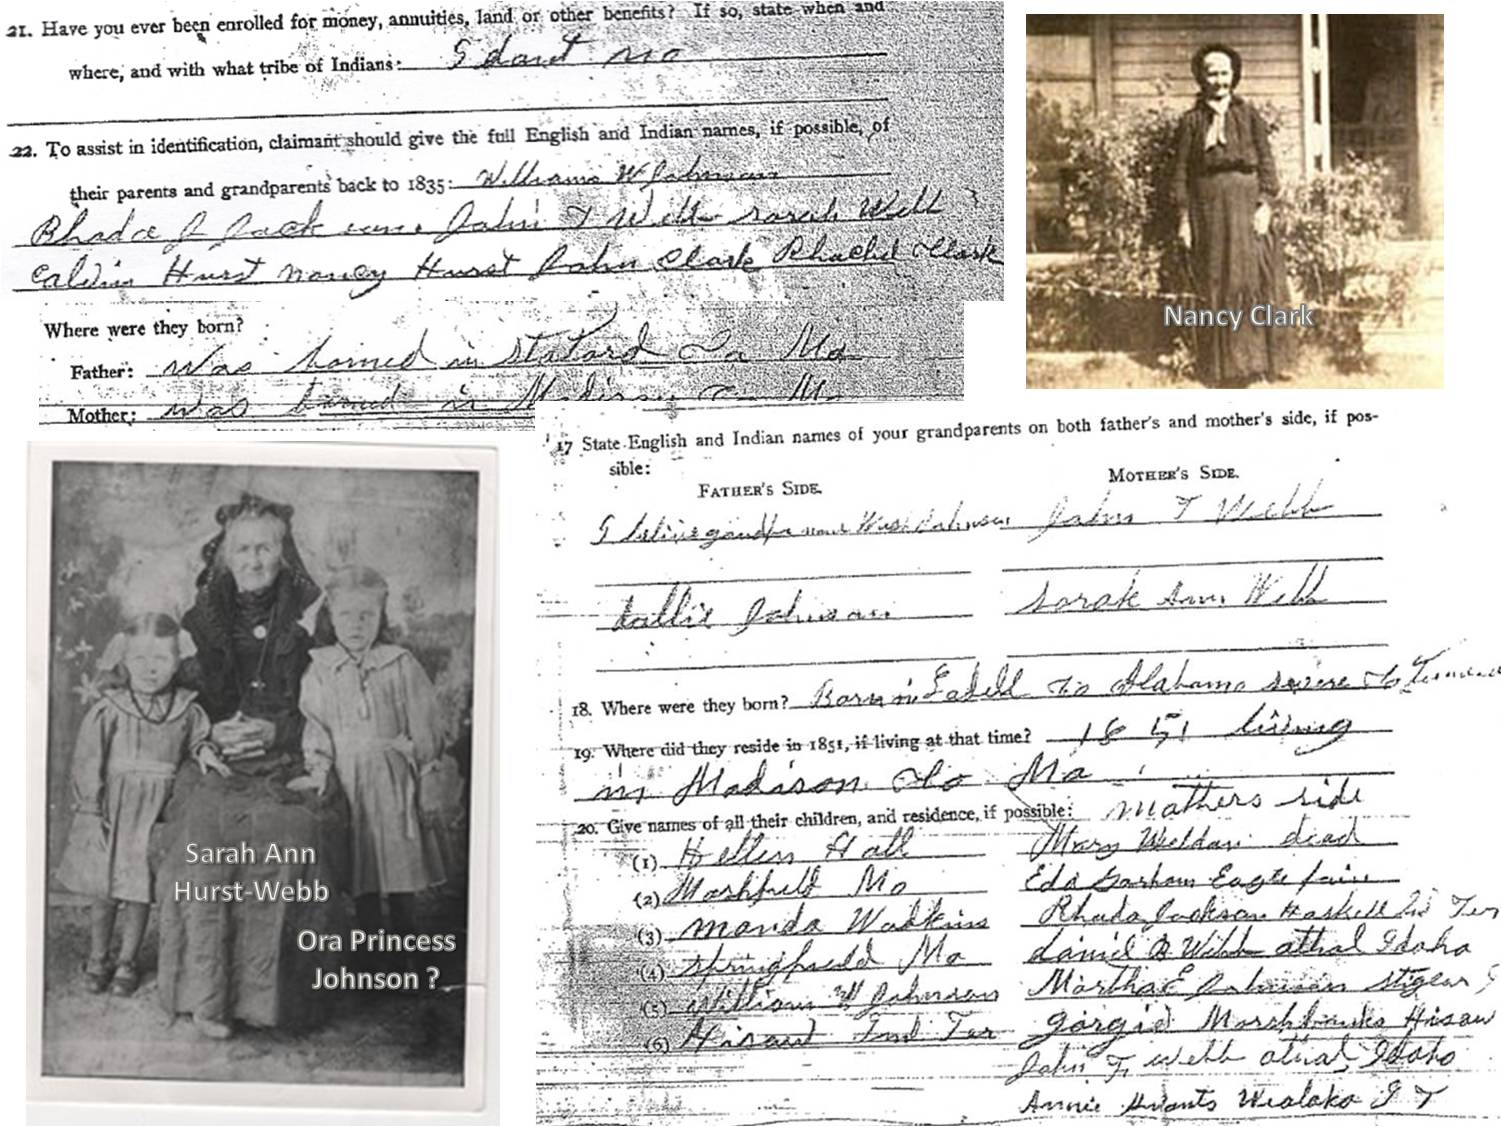 21. Have you ever been enrolled for money, annuities, land or other benefits? If so, state when and
where, and with what tribe of Indians: I dont no
22. To assist in identification, claimant should give the full English and Indian names, if possible, of
their parents and grandparents back to 1835: Williams W Johnson
Rhada J Jackson John T Webb Sarah Webb
Calvin Hurst Nancy Hurst John Clark Rhachel Clark
Where were they born?
Father: was borned in Co Mo
Mother: was borned in Madison Co Mo
Nancy Clark
17 State English and Indian names of your grandparents on both father's and mother's side, if pos-
sible:
FATHER'S SIDE. MOTHER'S SIDE.
I Johnson John T Webb
Johnson Sarah Ann Webb
18. Where were they born? Born in Co Alabama Co
19. Where did they reside in 1851, if living at that time? 1851 living
in Madison Co Mo
20. Give names of all their children, and residence, if possible: Mothers side
(1) Hellen Hall Mary Weldon dead
(2) Marshfield Mo Eda
(3) Manda Wadkins Rhuda Jackson Haskell Ind Ter
(4) Springfield Mo Daniel B Webb athol Idaho
(5) William W Johnson Martha E Johnson
(6) Ind Ter Marshbanks
John F Webb athol Idaho
Annie Wealaka I T
Sarah Ann
Hurst-Webb
Ora Princess
Johnson ?